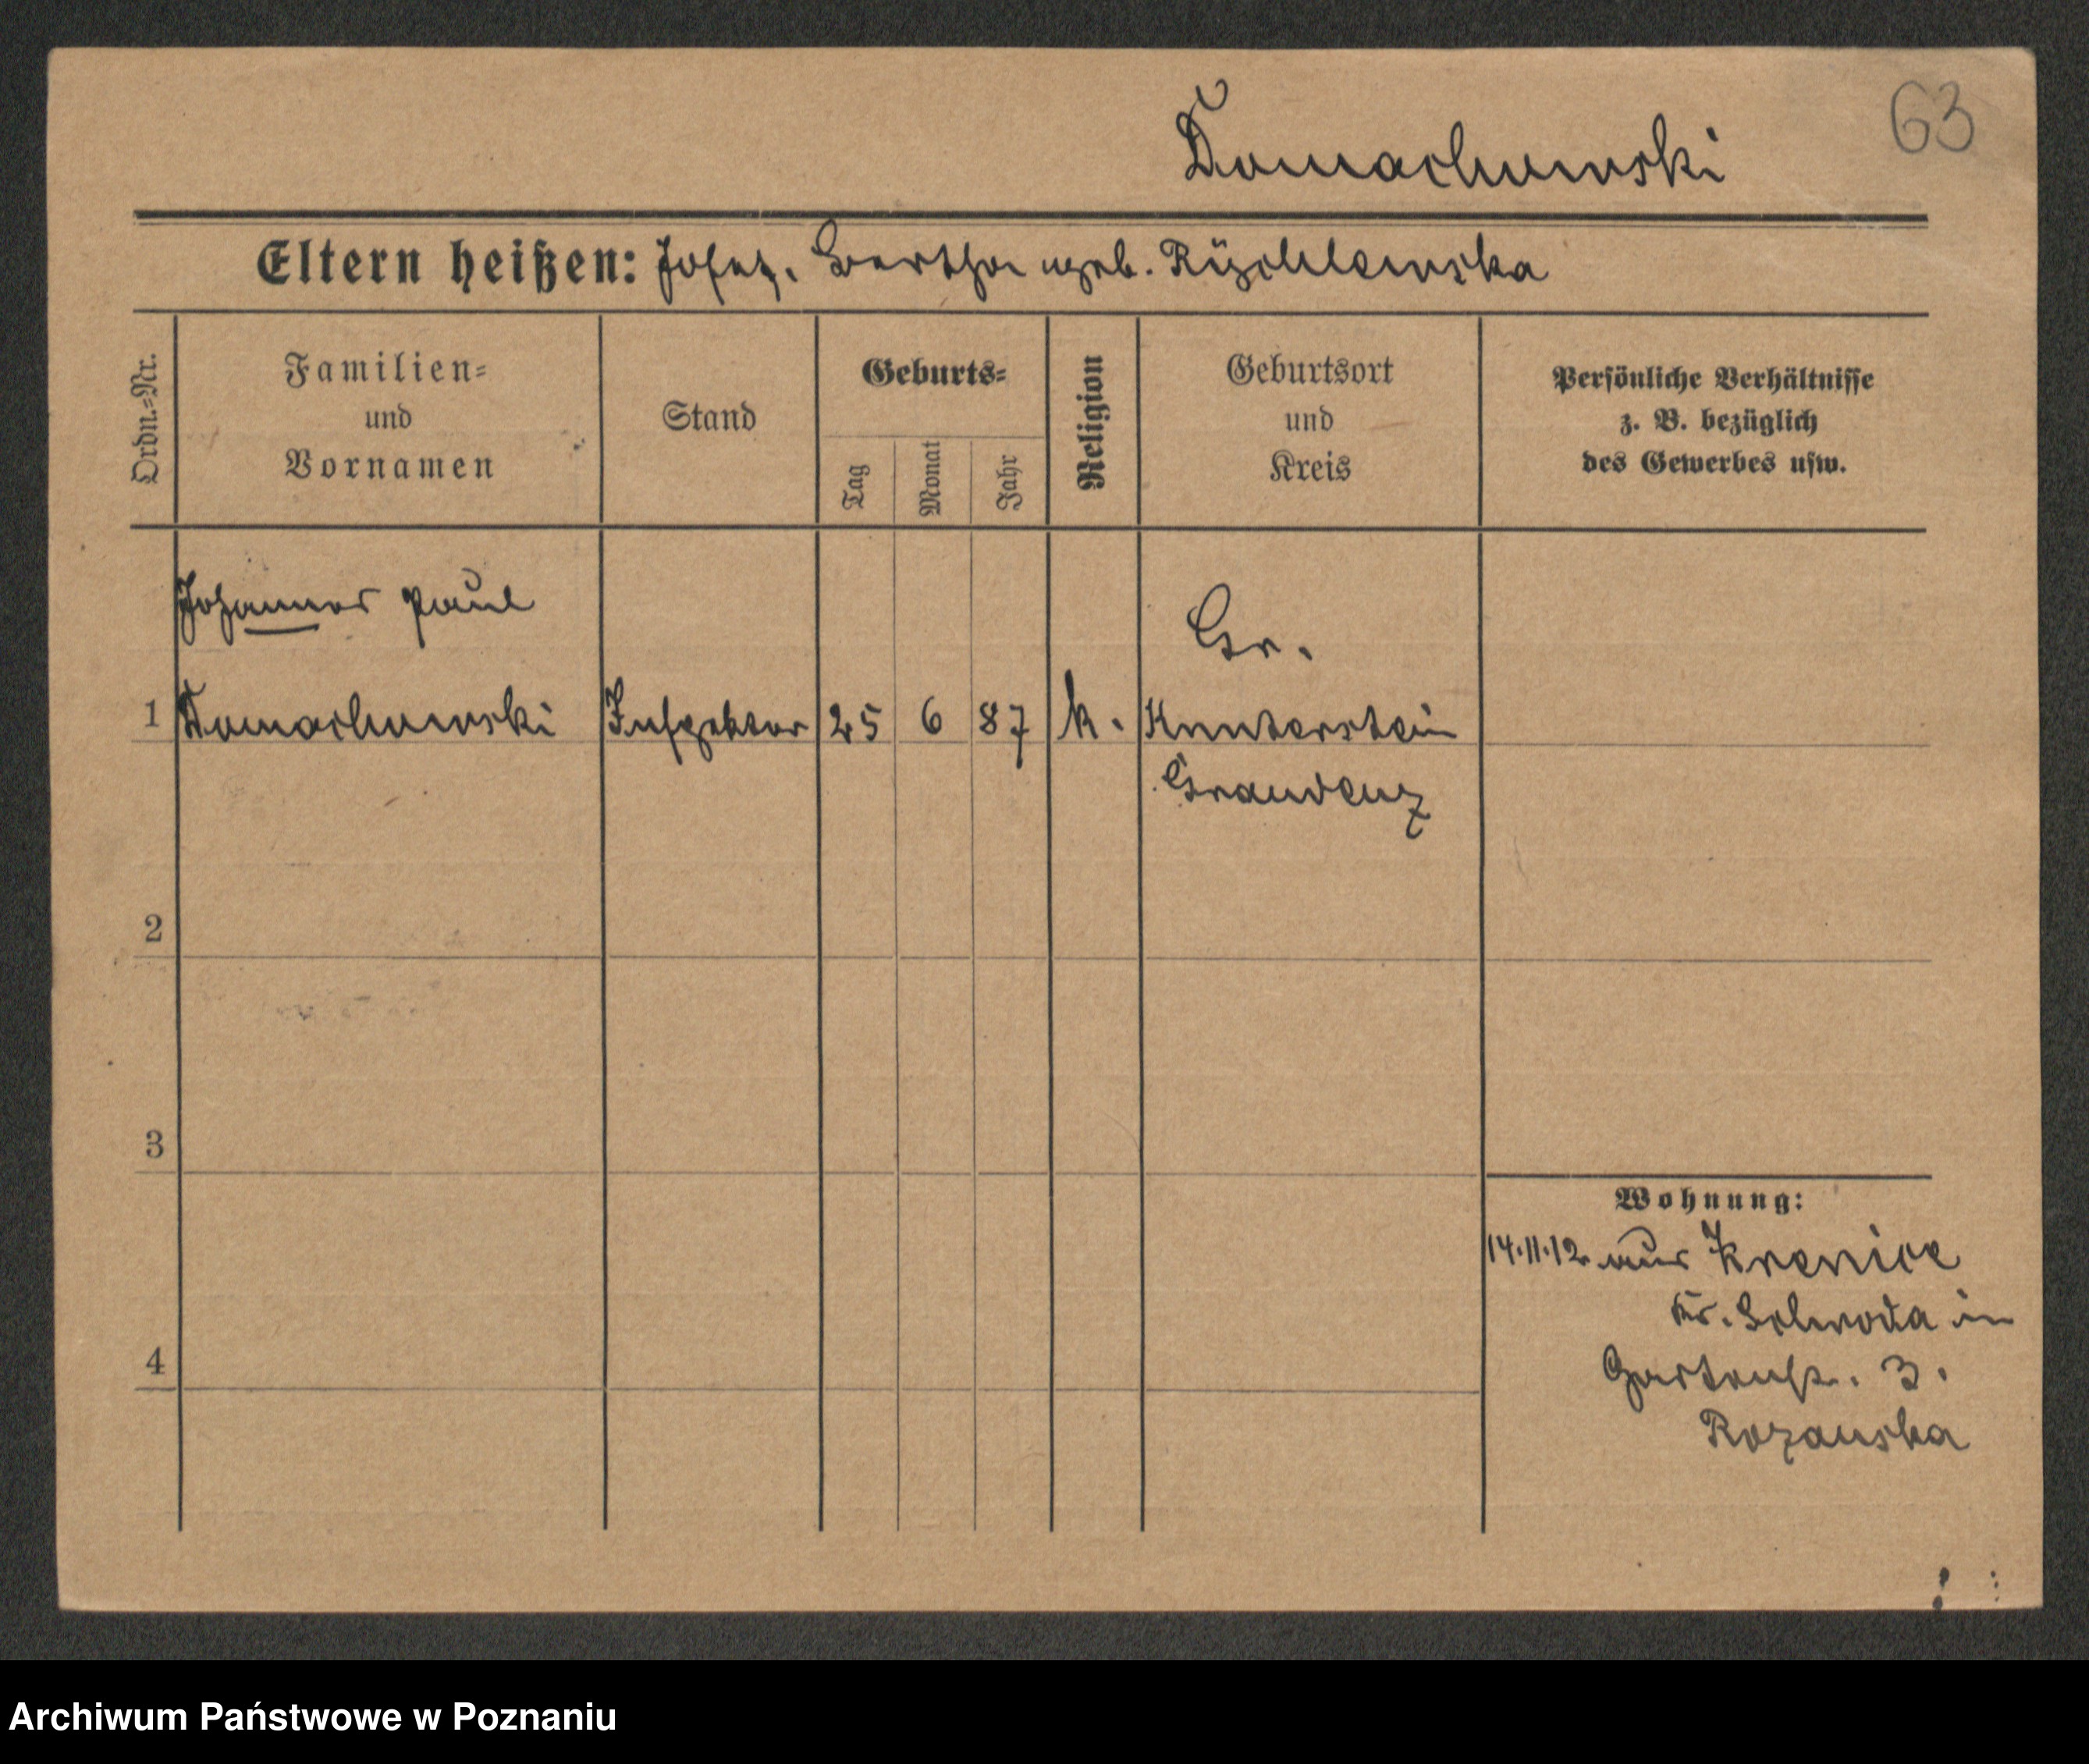 63
Domachowski
Eltern heißen: Josef. Bertha geb. Rychlewska
Ordn.=Nr.
Familien=
und
Vornamen
Stand
Geburts=
Tag
Monat
Jahr
Religion
Geburtsort
und
Kreis
Persönliche Verhältnisse
z. B. bezüglich
des Gewerbes usw.
Johannes Paul
Gr.
1 Domachowski Inspektor 25 6 87 k.
Graudenz
2
3
Wohnung:
14.11.12 aus
Kr. Schroda in
4
Gartenstr. 3.
Rozanska
Archiwum Państwowe w Poznaniu